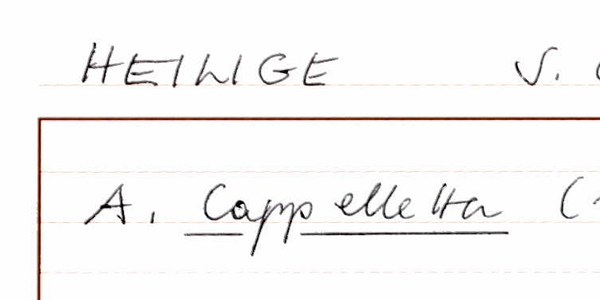 HEILIGE V.
A. Cappelletta (